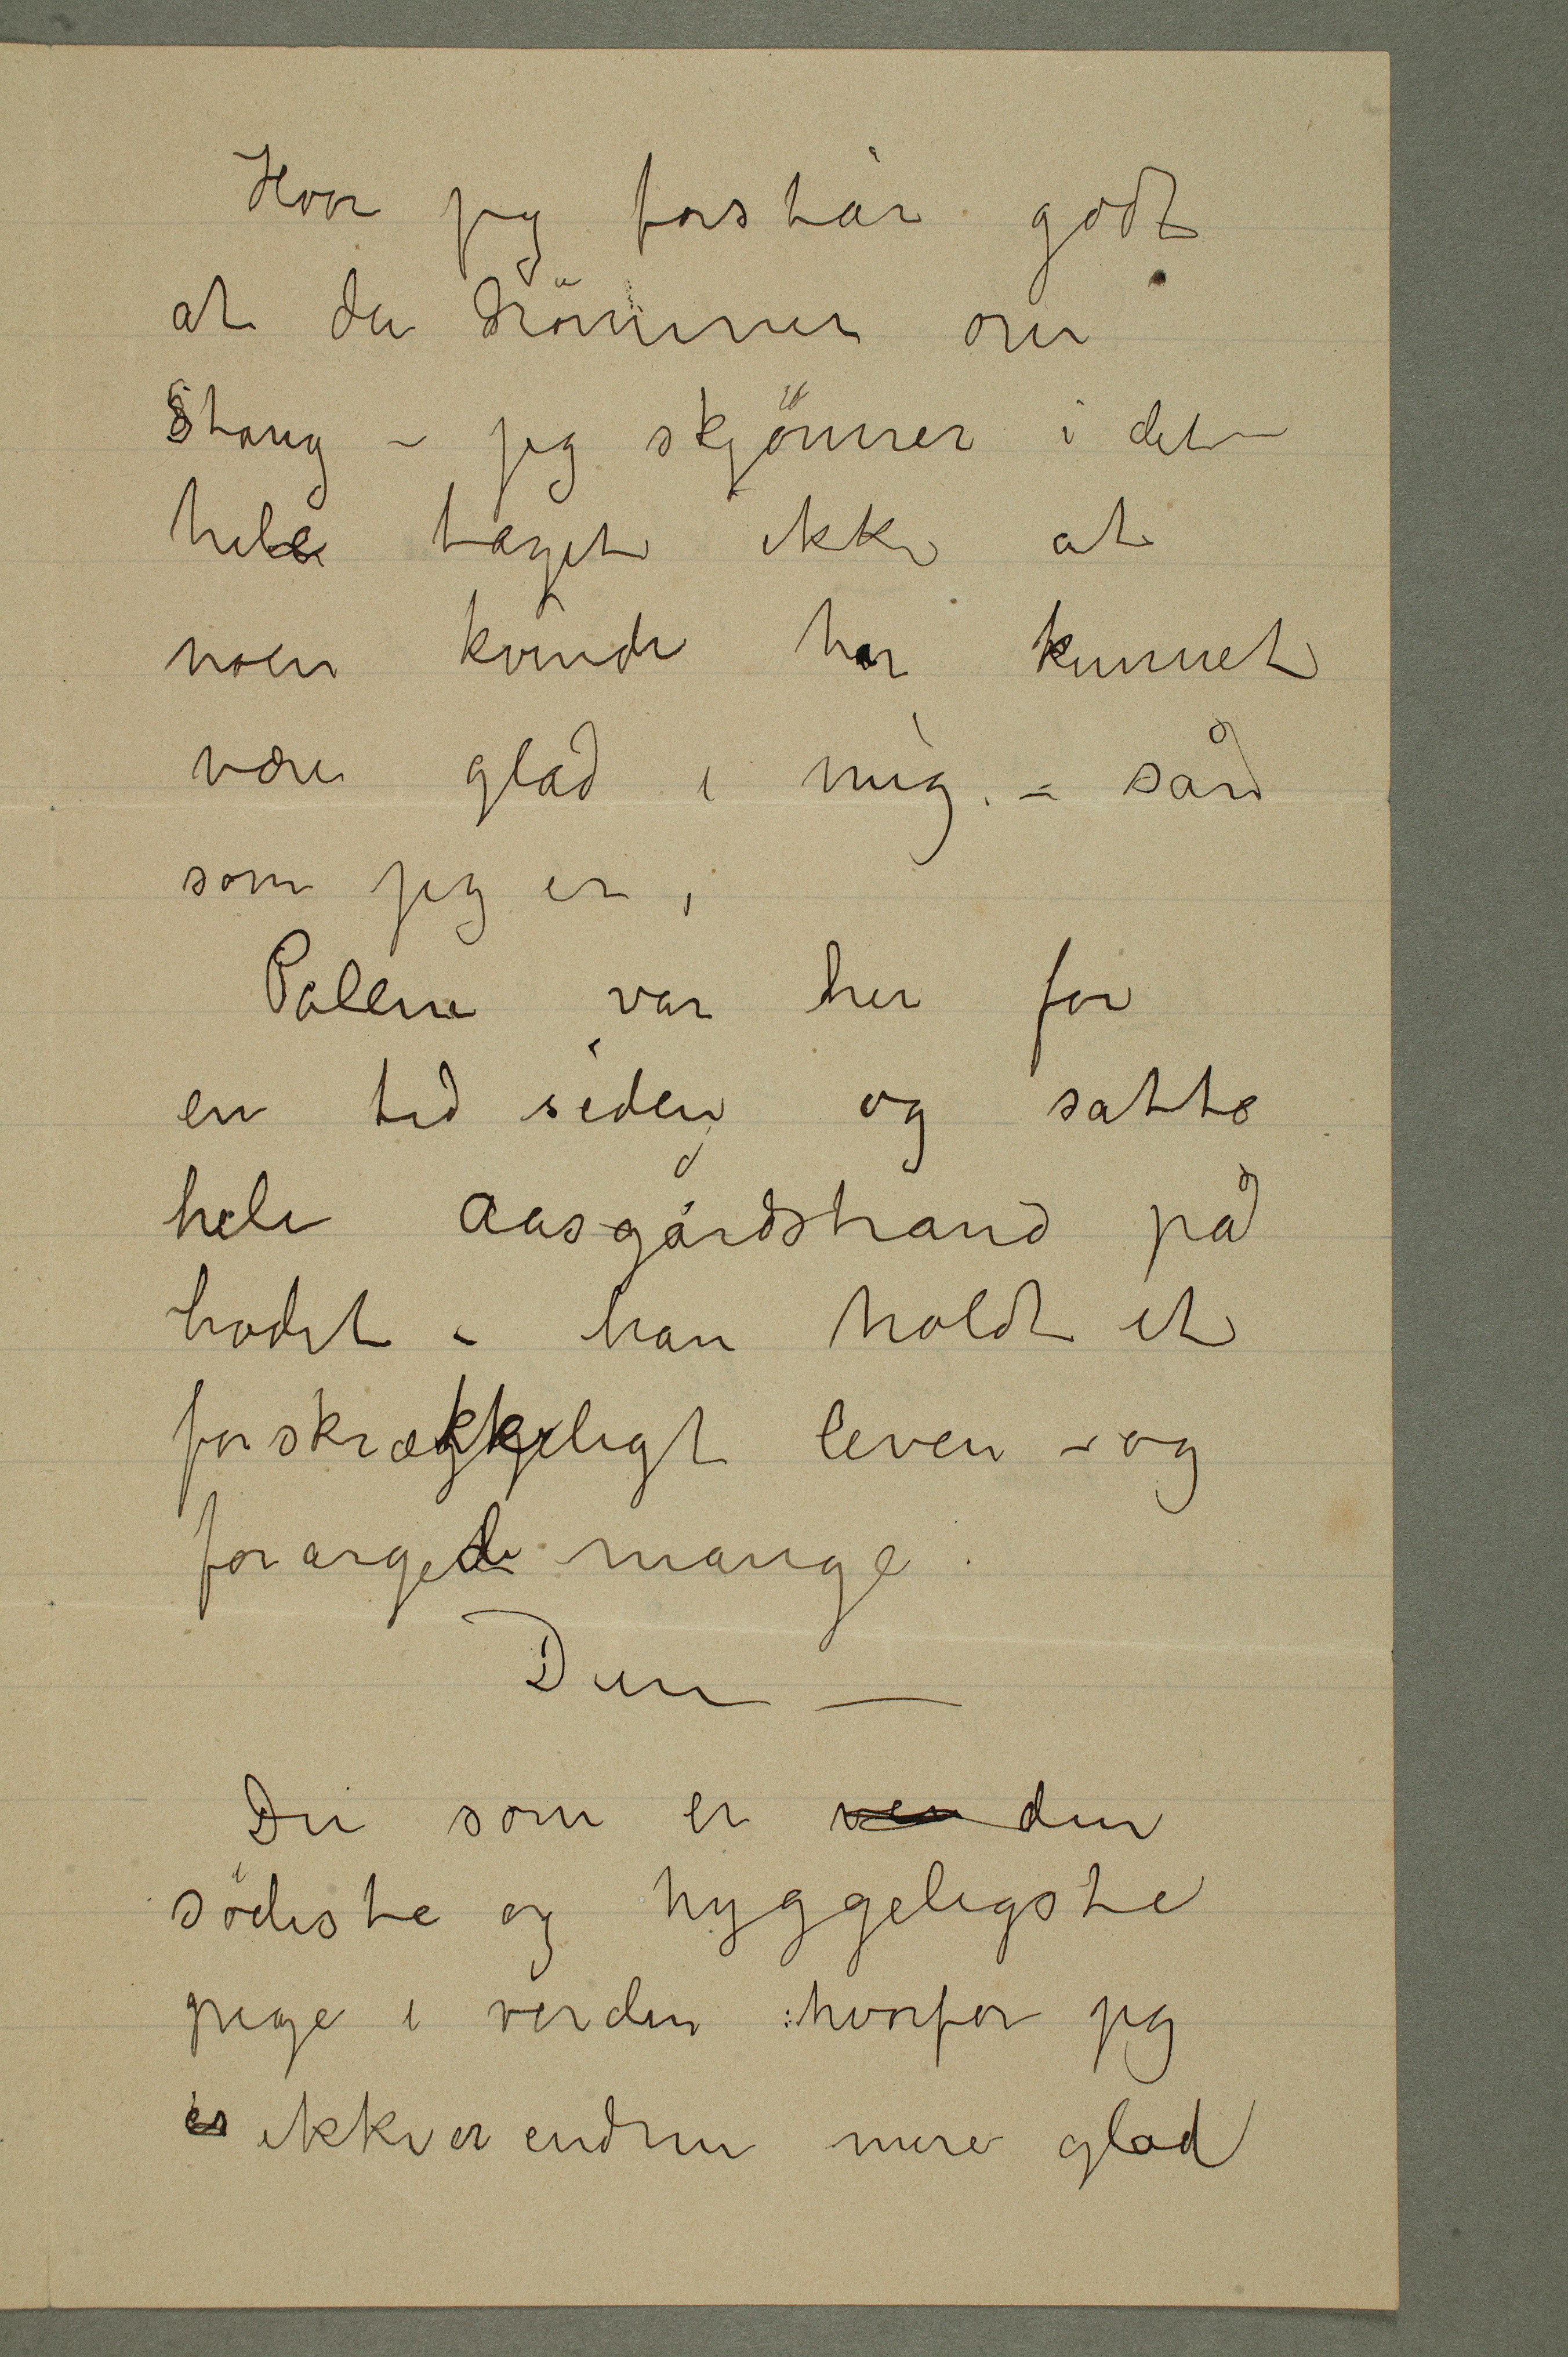 Hvor jeg forstår godt
at du drömmer om
Stang – jeg skjönner i det
hele taget ikke at
noen kvinde har kunnet
være glad i mig. – sån
som jeg er,
Palerne var her for
en tid siden og satte
hele Aasgårdstrand på
hodet – han holdt et
forskrækkeligt leven – og
forargede mange.
Dun —
Du som er den
södeste og hyggeligste
pige i verden : hvorfor jeg
er ikke er endnu mere glad